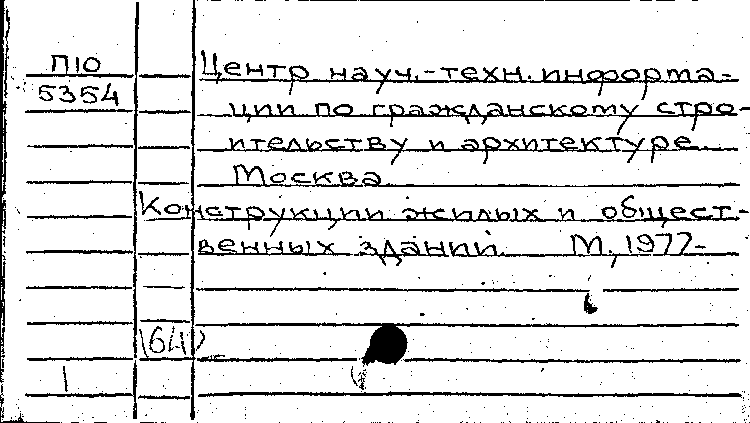 П10 Центр науч.-техн. информа-
5354 ции по гражданскому стро-
ительству и архитектуре.
Москва.
Конструкции жилых и общест-
венных зданий. М., 1977-
(64)
1